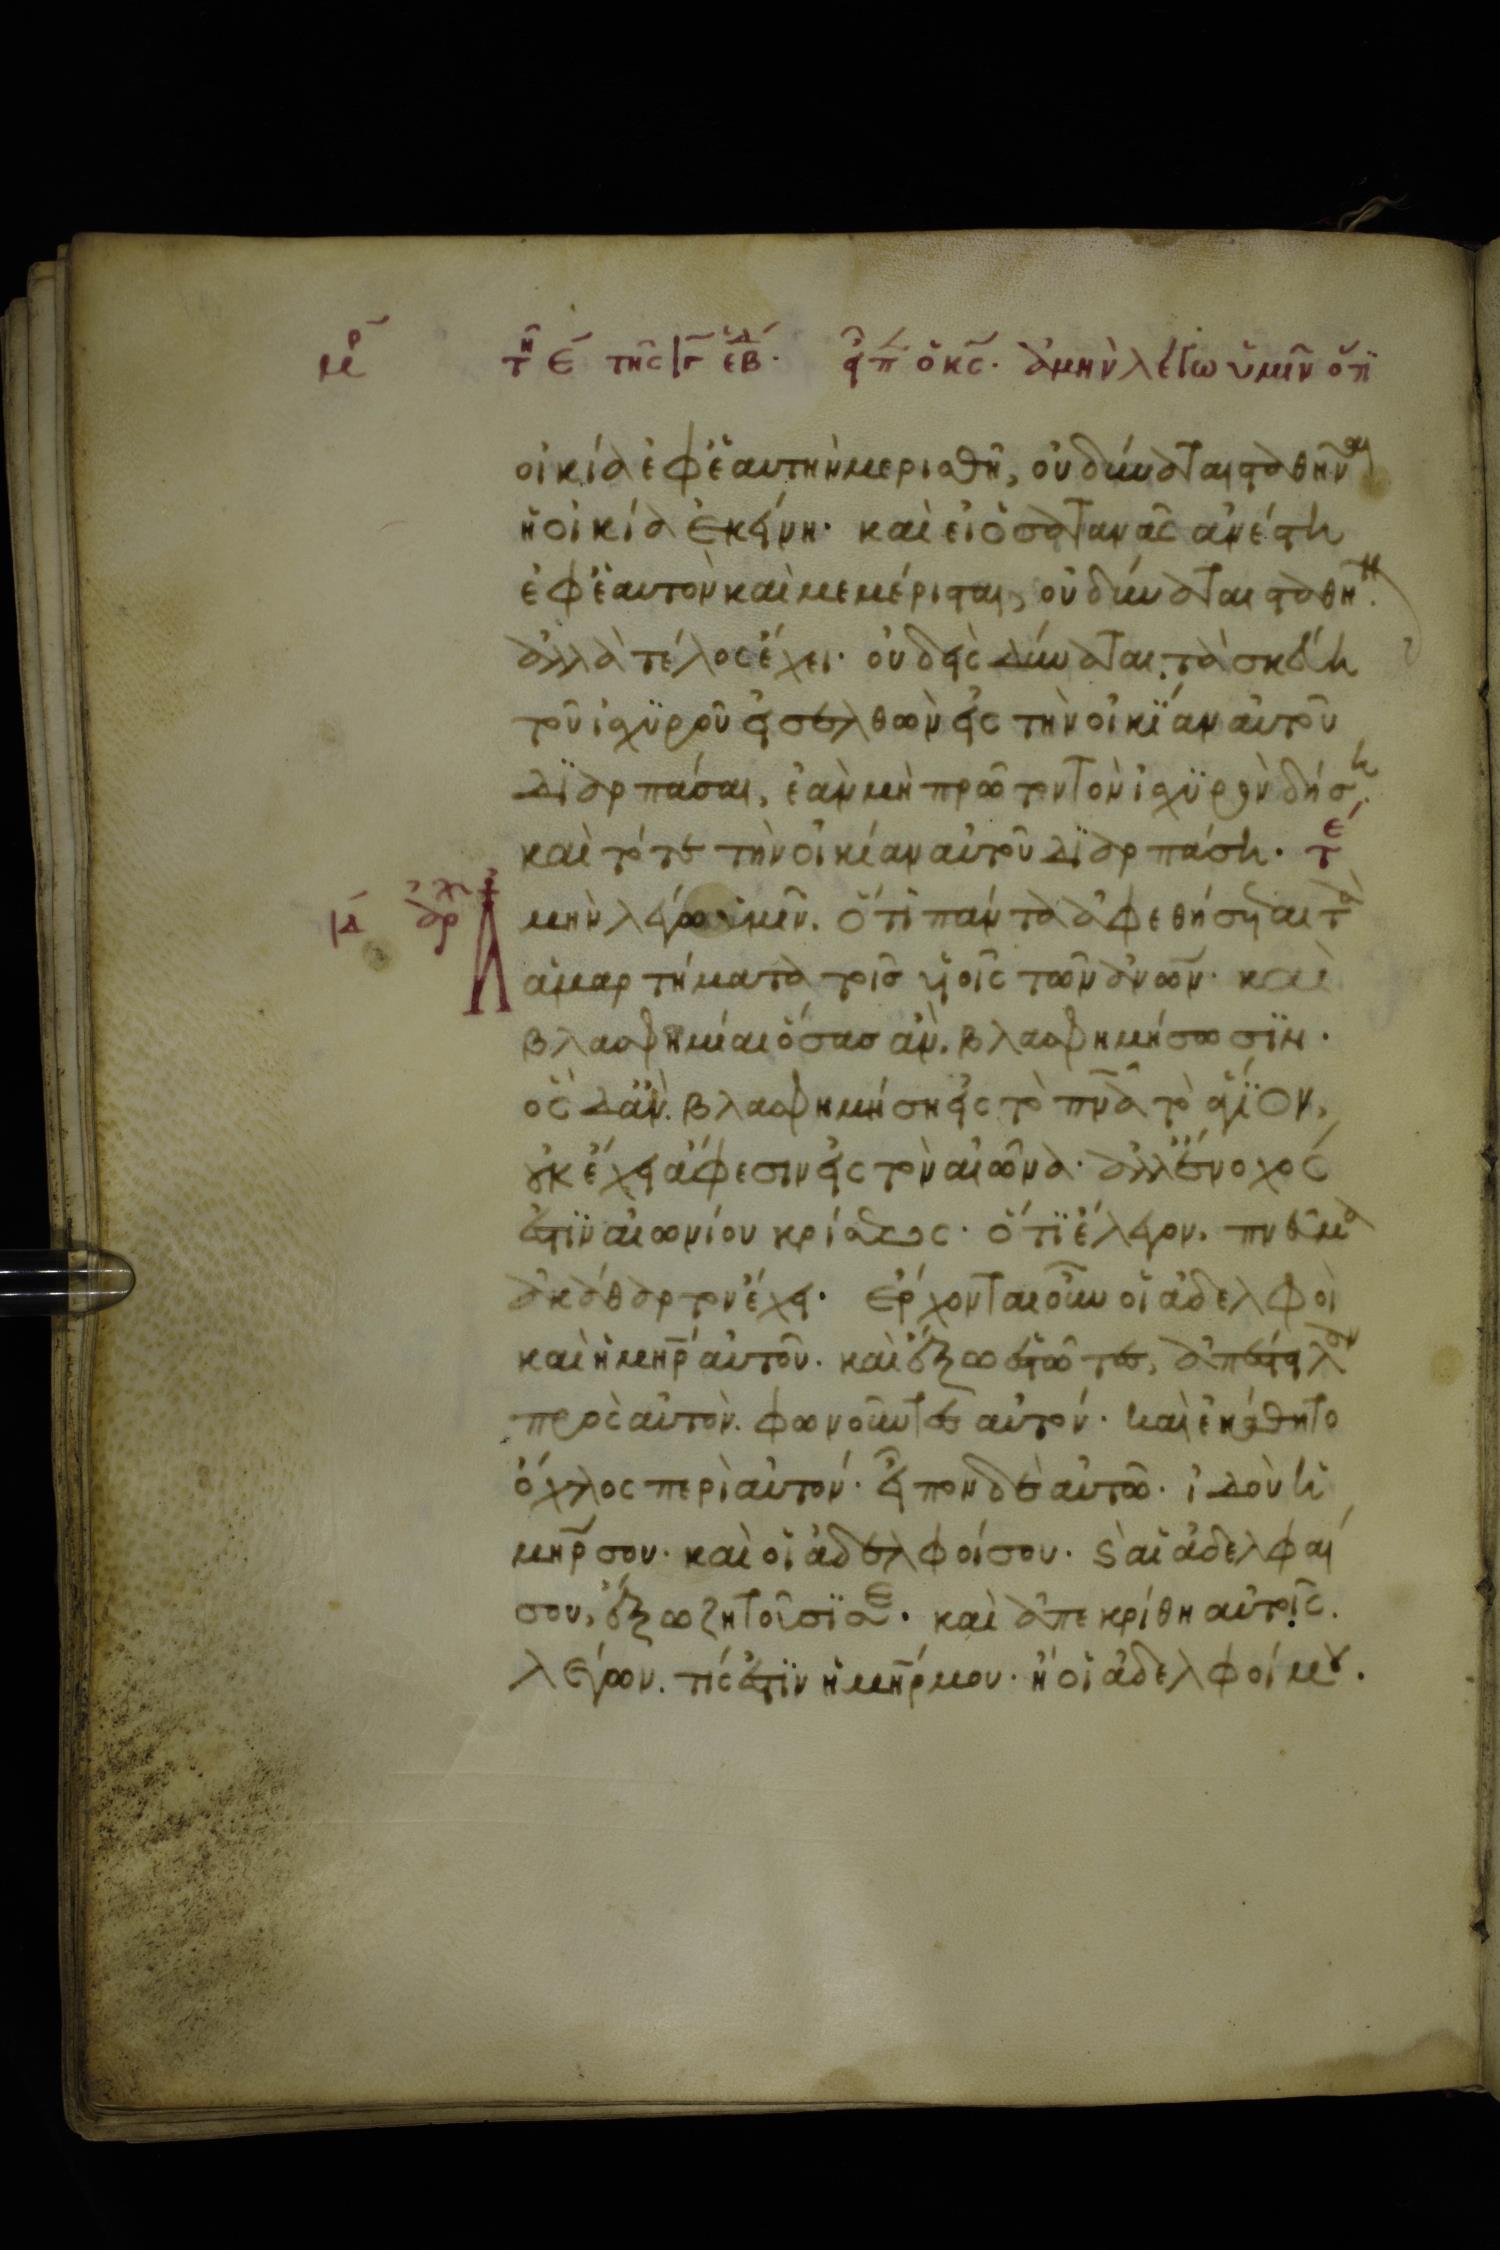 μρ τη ε της ιγ εβδ. ειπ ὁ κς. ἀμὴν λέγω ὑμῖν ὅτι
οἰκία ἐφ ἑαυτὴν μερισθῆ, οὐ δύναται σταθῆναι
ἡ οἰκία ἐκείνη. καὶ εἰ ὁ σατανᾶς ἀνέστη
ἐφ ἑαυτὸν καὶ μεμέρισται, οὐ δύναται σταθῆν.
ἀλλὰ τέλος ἔχει. οὐδεὶς δύναται τὰ σκεύη
τοῦ ἰσχϋροῦ εἰσελθὼν εἰς τὴν οἰκΐαν αὐτοῦ
δϊαρπάσαι, ἐὰν μὴ πρῶτον τὸν ἰσχϋρὸν δήση.
καὶ τότε τὴν οἰκίαν αὐτοῦ δϊαρπάση. τε
ιδ αρχ Ἀμὴν λέγω ὑμῖν. ὅτι πάντα ἀφεθήσεται τὰ
ἁμαρτήματα τοῖσ υἱοῖς τῶν ἀνων. καὶ
βλασφημίαι ὅσασ ἀν. βλασφημήσωσϊν.
ὃς δ ἂν. βλασφημήση εἰς τὸ πνα τὸ ἅγϊον,
οὐκ ἔχει ἄφεσιν εἰς τὸν αἰῶνα. ἀλλ ἔνοχος
ἐστϊν αἰωνίου κρίσεως. ὅτϊ ἔλεγον. πνεῦμα
ἀκάθαρτον ἔχει. ἔρχονται οὖν οἱ ἀδελφοὶ
καὶ ἡ μηρ αὐτοῦ. καὶ ἔξω ἑστῶτες, ἀπέστειλαν
πρὸς αὐτὸν. φωνοῦντες αὐτόν. καὶ ἐκάθητο
ὄχλος περὶ αὐτόν. εἶπον δὲ αὐτῶ. ἰδοὺ ἡ
μηρ σου. καὶ οἱ ἀδελφοί σου. ϗ αἱ ἀδελφαί
σου, ἔξω ζητοῦσϊ σε. καὶ ἀπεκρίθη αὐτοῖς.
λέγων. τίς ἐστϊν ἡ μηρ μου. ἢ οἱ ἀδελφοί μου.